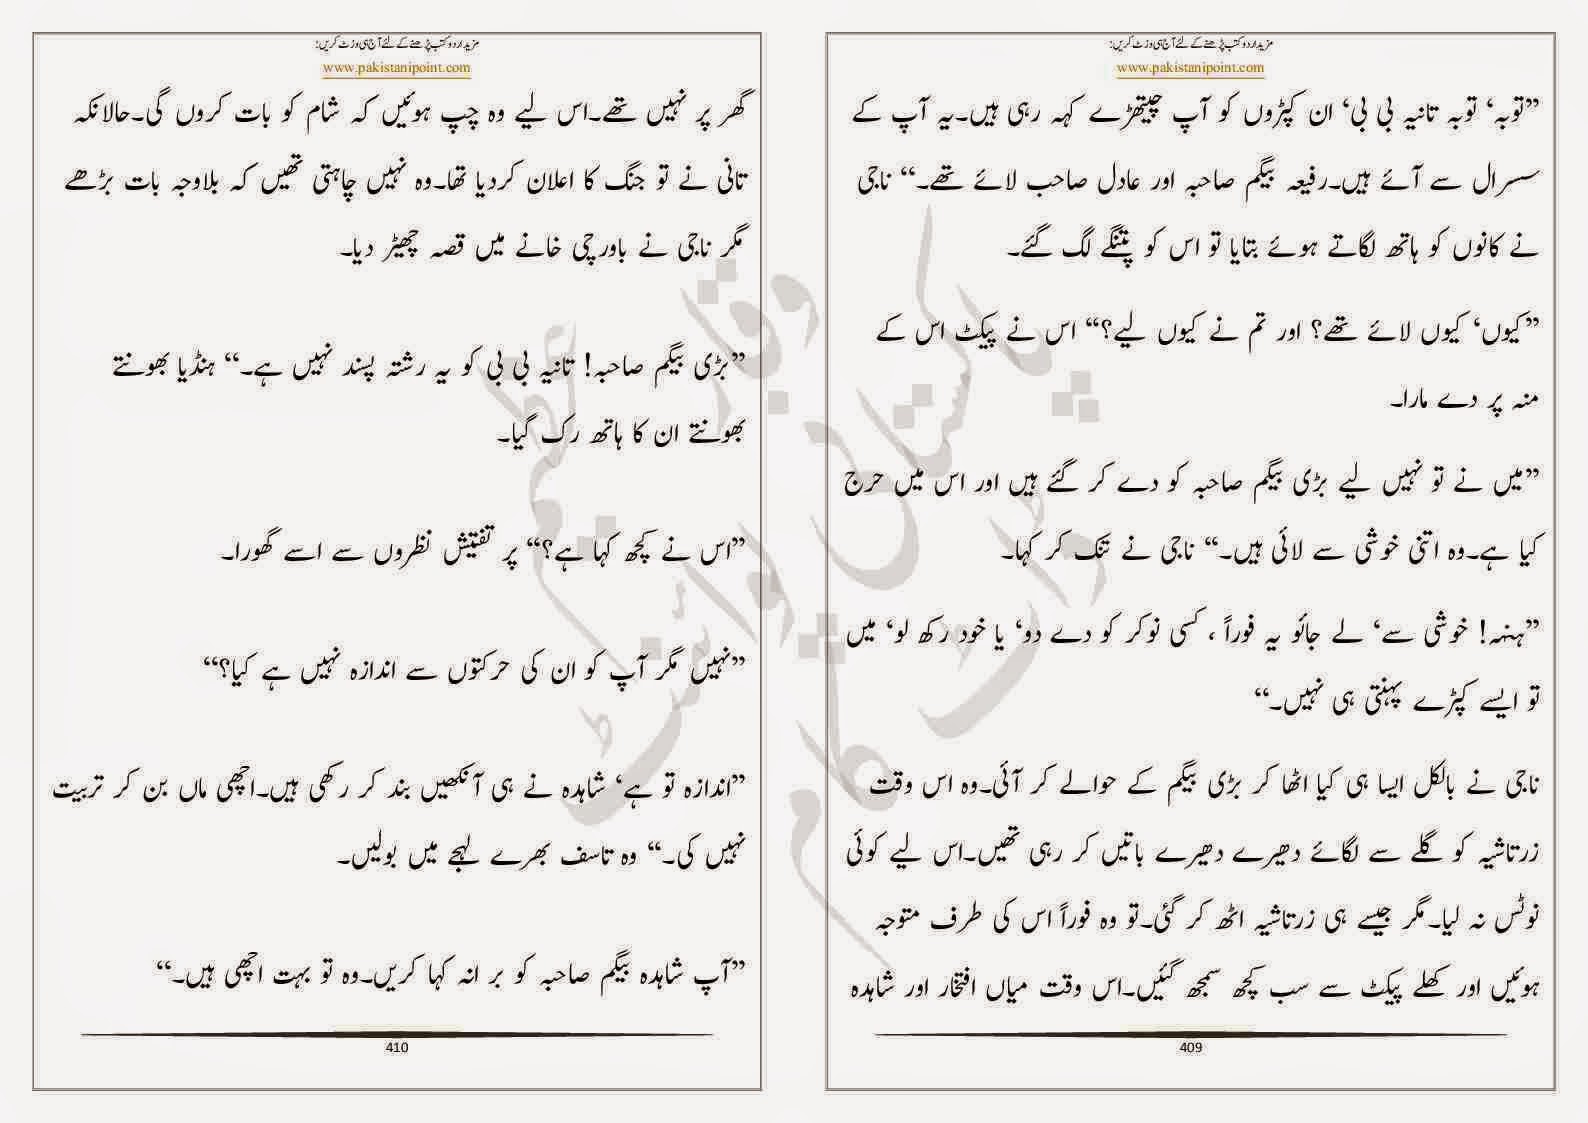 مزید اردو کتب پڑھنے کے لئے آج ہی وزٹ کریں:
www.pakistanipoint.com
”توبہ‘ توبہ تانیہ بی بی‘ ان کپڑوں کو آپ چیتھڑے کہہ رہی ہیں۔یہ آپ کے
سسرال سے آئے ہیں۔رفیعہ بیگم صاحبہ اور عادل صاحب لائے تھے۔“ ناجی
نے کانوں کو ہاتھ لگاتے ہوئے بتایا تو اس کو پتنگے لگ گئے۔
”کیوں‘ کیوں لائے تھے؟ اور تم نے کیوں لیے؟“ اس نے پیکٹ اس کے
منہ پر دے مارا۔
”میں نے تو نہیں لیے بڑی بیگم صاحبہ کو دے کر گئے ہیں اور اس میں حرج
کیا ہے۔وہ اتنی خوشی سے لائی ہیں۔“ ناجی نے تنک کر کہا۔
”ہنہہ! خوشی سے‘ لے جائو یہ فوراً ، کسی نوکر کو دے دو‘ یا خود رکھ لو‘ میں
تو ایسے کپڑے پہنتی ہی نہیں۔“
ناجی نے بالکل ایسا ہی کیا اٹھا کر بڑی بیگم کے حوالے کر آئی۔وہ اس وقت
زرتاشیہ کو گلے سے لگائے دھیرے دھیرے باتیں کر رہی تھیں۔اس لیے کوئی
نوٹس نہ لیا۔مگر جیسے ہی زرتاشیہ اٹھ کر گئی۔تو وہ فوراً اس کی طرف متوجہ
ہوئیں اور کھلے پیکٹ سے سب کچھ سمجھ گئیں۔اس وقت میاں افتخار اور شاہدہ
409
مزید اردو کتب پڑھنے کے لئے آج ہی وزٹ کریں:
www.pakistanipoint.com
گھر پر نہیں تھے۔اس لیے وہ چپ ہوئیں کہ شام کو بات کروں گی۔حالانکہ
تانی نے تو جنگ کا اعلان کردیا تھا۔وہ نہیں چاہتی تھیں کہ بلاوجہ بات بڑھے
مگر ناجی نے باورچی خانے میں قصہ چھیڑ دیا۔
”بڑی بیگم صاحبہ! تانیہ بی بی کو یہ رشتہ پسند نہیں ہے۔“ ہنڈیا بھونتے
بھونتے ان کا ہاتھ رک گیا۔
”اس نے کچھ کہا ہے؟“ پر تفتیش نظروں سے اسے گھورا۔
”نہیں مگر آپ کو ان کی حرکتوں سے اندازہ نہیں ہے کیا؟“
”اندازہ تو ہے‘ شاہدہ نے ہی آنکھیں بند کر رکھی ہیں۔اچھی ماں بن کر تربیت
نہیں کی۔“ وہ تاسف بھرے لہجے میں بولیں۔
”آپ شاہدہ بیگم صاحبہ کو بر انہ کہا کریں۔وہ تو بہت اچھی ہیں۔“
410
وقار
عظیم
پاکستانی پوائنٹ
ڈاٹ کام